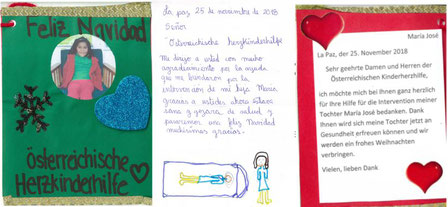 Feliz Navidad
Österreichische
Herzkinderhilfe
La paz, 25 de noviembre de 2018
Señor
Österreichische herzkinderhilfe
Me dirijo a usted con mucho
agradecimiento por la ayuda
que me brindaron por la
intervención de mi hija Maria
gracias a ustedes ahora estara
sana y gozara de salud y
pasaremos una feliz Navidad
muchisimas gracias.
María José
La Paz, der 25. November 2018
Sehr geehrte Damen und Herren der
Österreichischen Kinderherzhilfe,
ich möchte mich bei Ihnen ganz herzlich
für Ihre Hilfe für die Intervention meiner
Tochter María José bedanken. Dank
Ihnen wird sich meine Tochter jetzt an
Gesundheit erfreuen können und wir
werden ein frohes Weihnachten
verbringen.
Vielen, lieben Dank